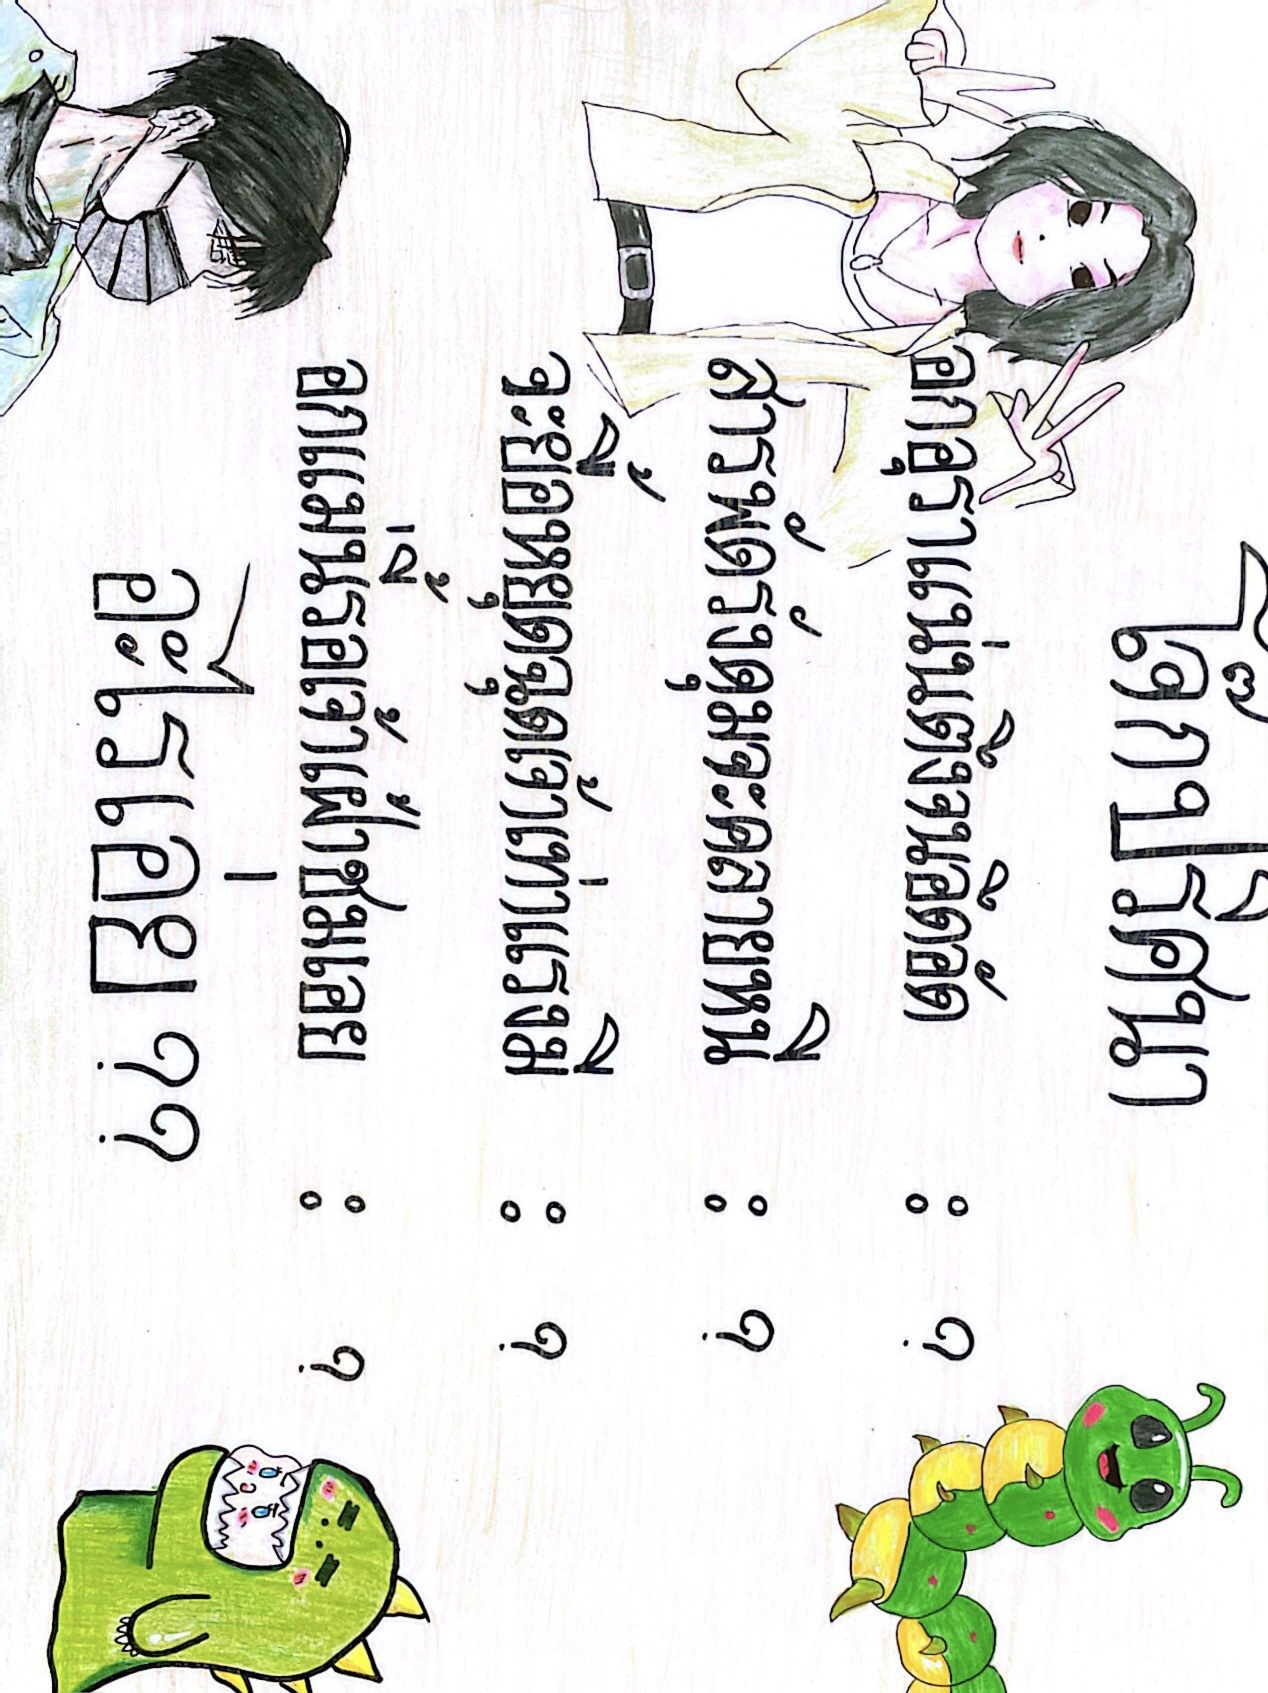 โจ๊กปริศนา
อกอุราแน่นตึงจนอึดอัด : ?
สารพัดรังดุมจะคลายหนี : ?
จะยื้อหยุดฉุดเจ้าเท่าแรงมี : ?
อกแม่นี้รอเจ้าเฝ้าชมเอย : ?
อะไรเอ่ย ??